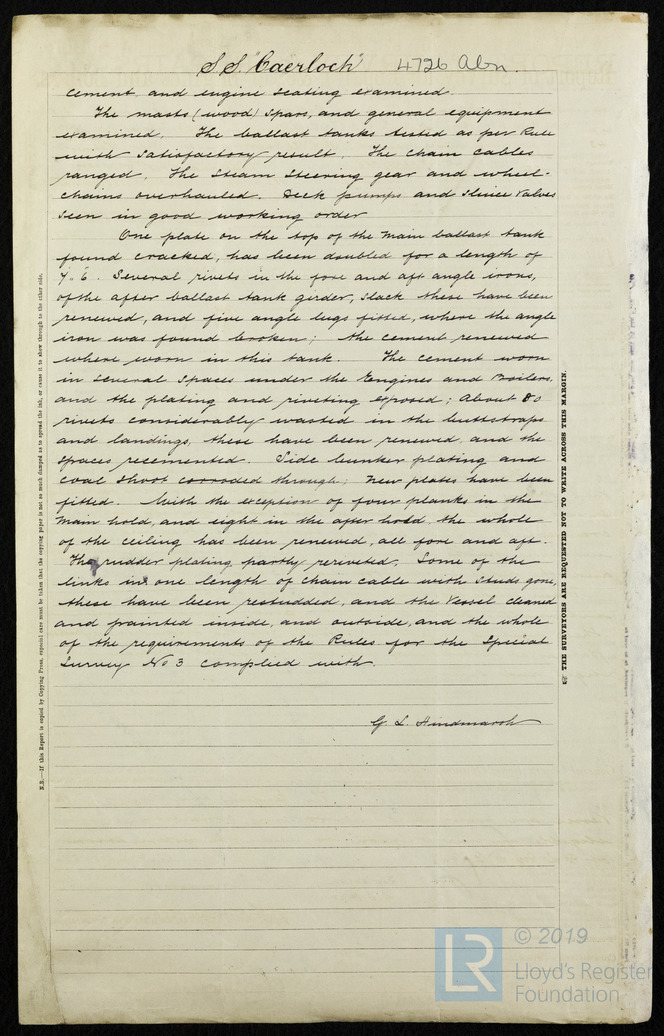 S.S. "Caerloch" 4726 Abn.
cement and engine seating examined.
The masts (wood) spars, and general equipment
examined. The ballast tanks tested as per Rule
with satisfactory result. The chain cables
ranged. The steam steering gear and wheel-
chains overhauled. Deck pumps and sluice valves
seen in good working order
One plate on the top of the main ballast tank
found cracked, has been doubled for a length of
7'.. 6". Several rivets in the fore and aft angle irons,
of the after ballast tank girder, slack these have been
renewed, and five angle lugs fitted, where the angle
iron was found broken; the cement renewed
where worn in this tank. The cement worn
in several spaces under the Engines and Boilers,
and the plating and riveting exposed; About 80
rivets considerably wasted in the buttstraps
and landings, these have been renewed and the
spaces recemented. Side bunker plating and
coal shoot corroded through; new plates have been
fitted. With the exception of four planks in the
main hold, and eight in the after hold, the whole
of the ceiling has been renewed, all fore and aft.
The rudder plating partly reriveted, Some of the
links in one length of chain cable with studs gone,
these have been restudded, and the Vessel cleaned
and painted inside, and outside, and the whole
of the requirements of the Rules for the Special
Survey No 3 complied with.
G. L. Hindmarsh
N.B.—If this Report is copied by Copying Press, especial care must be taken that the copying paper is not so much damped as to spread the ink, or cause it to show through to the other side.
☞ THE SURVEYORS ARE REQUESTED NOT TO WRITE ACROSS THIS MARGIN.
LR
© 2019
Lloyd's Register
Foundation